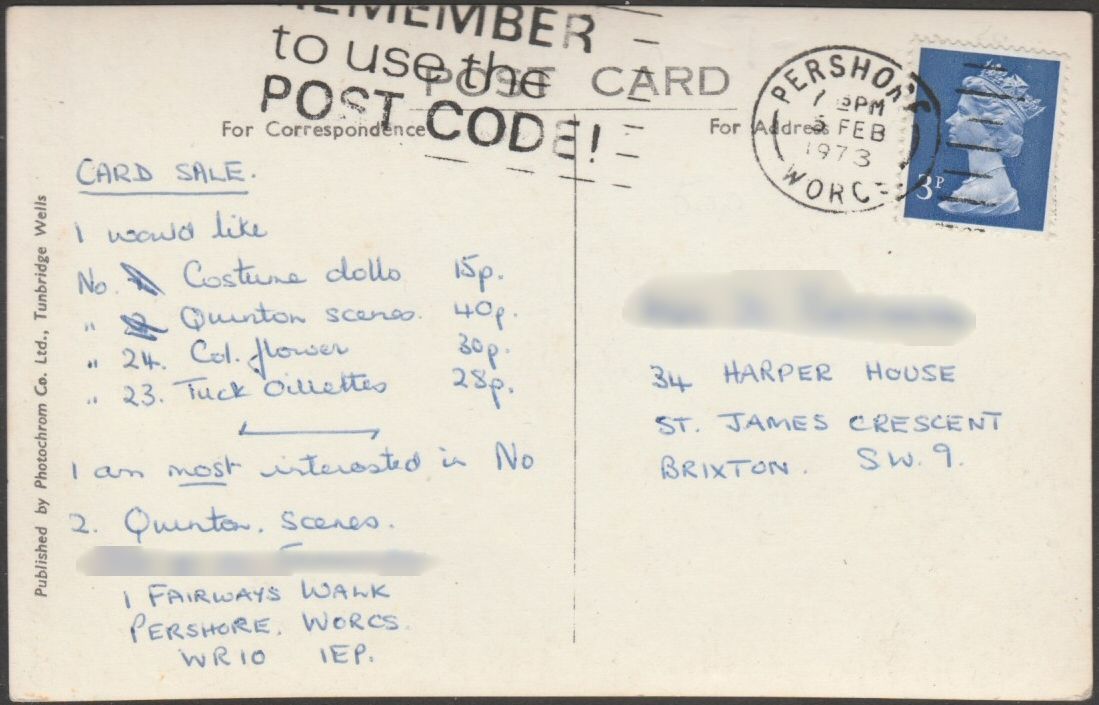 REMEMBER
to use the
POST CODE!
POST CARD
For Correspondence
For Address
PERSHORE
PM
5 FEB
1973
WORCS
3P
CARD SALE.
I would like
No. Costume dolls 15p.
" Quinton scenes. 40p.
" 24. Col. flower 30p.
" 23. Tuck Oillettes 28p.
I am most interested in No
2. Quinton. Scenes.
1 FAIRWAYS WALK
PERSHORE. WORCS.
WR10 1EP.
34 HARPER HOUSE
ST. JAMES CRESCENT
BRIXTON. S.W.9.
Published by Photochrom Co. Ltd., Tunbridge Wells